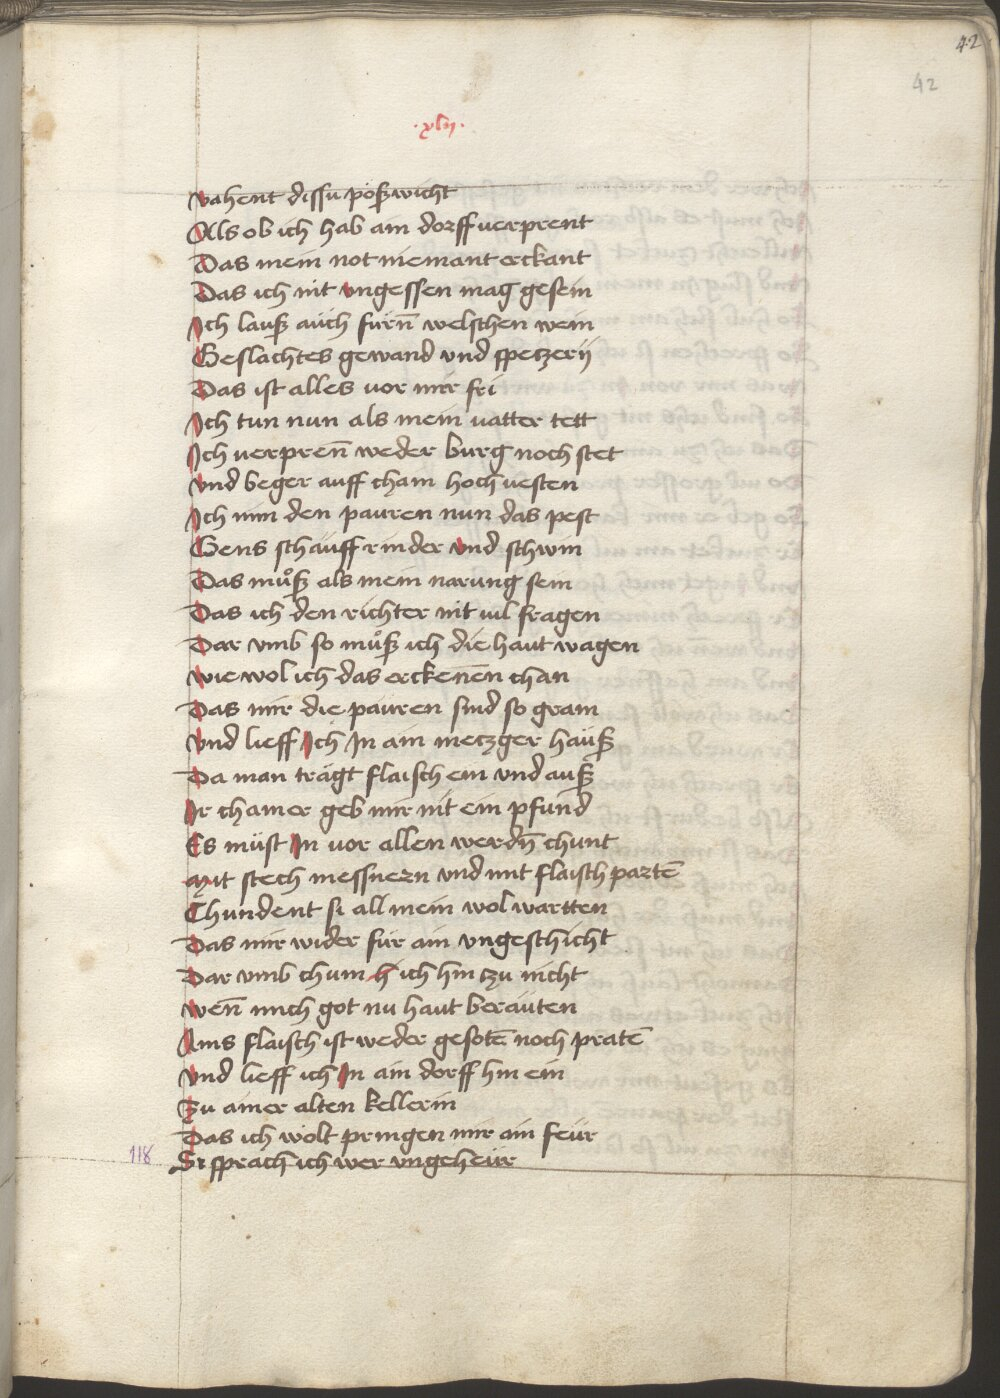 42
42
·xlij·
vahent dissn pößwicht
Als ob ich hab ain dorff verprent
Das mein not niemant erckant
Das ich nit vngessen mag gesein
Ich lauß auch fürn̄ welschen wein
Geslachtes gewand vnd spetzerij
Das ist alles vor mir fri
Ich tun nun als mein vatter tett
Ich verpren̄ weder burg noch stet
vnd beger auff cham hoch vesten
Ich nim den pauren nun das pest
Gens schauff rinder vnd schwin
Das můß als mein narung sein
Das ich den richter nit wil fragen
Dar vmb so můß ich die haut wagen
wie wol ich das erckenēn chan
Das mir die pauren sind so gram
vnd lieff Ich In ain metzger hauß
Da man trägt flaisch ein vnd auß
Ir chainer geb mir nit ein pfund
Es müst In vor allen werdn̄ chunt
Mit stech messnern vnd mit flaisch partē
Chundent si all mein wol wartten
Das mir wider für ain vngeschicht
Dar vmb chum h ich hin tzu nicht
wen̄ mich got nu haut beräuten
Ains flaisch ist weder gesotē noch pratē
vnd lieff ich In ain dorff hin ein
Zu ainer alten kellerin
Das ich wolt pringen mir ain feür
118 Si sprach ich wer vngeheür